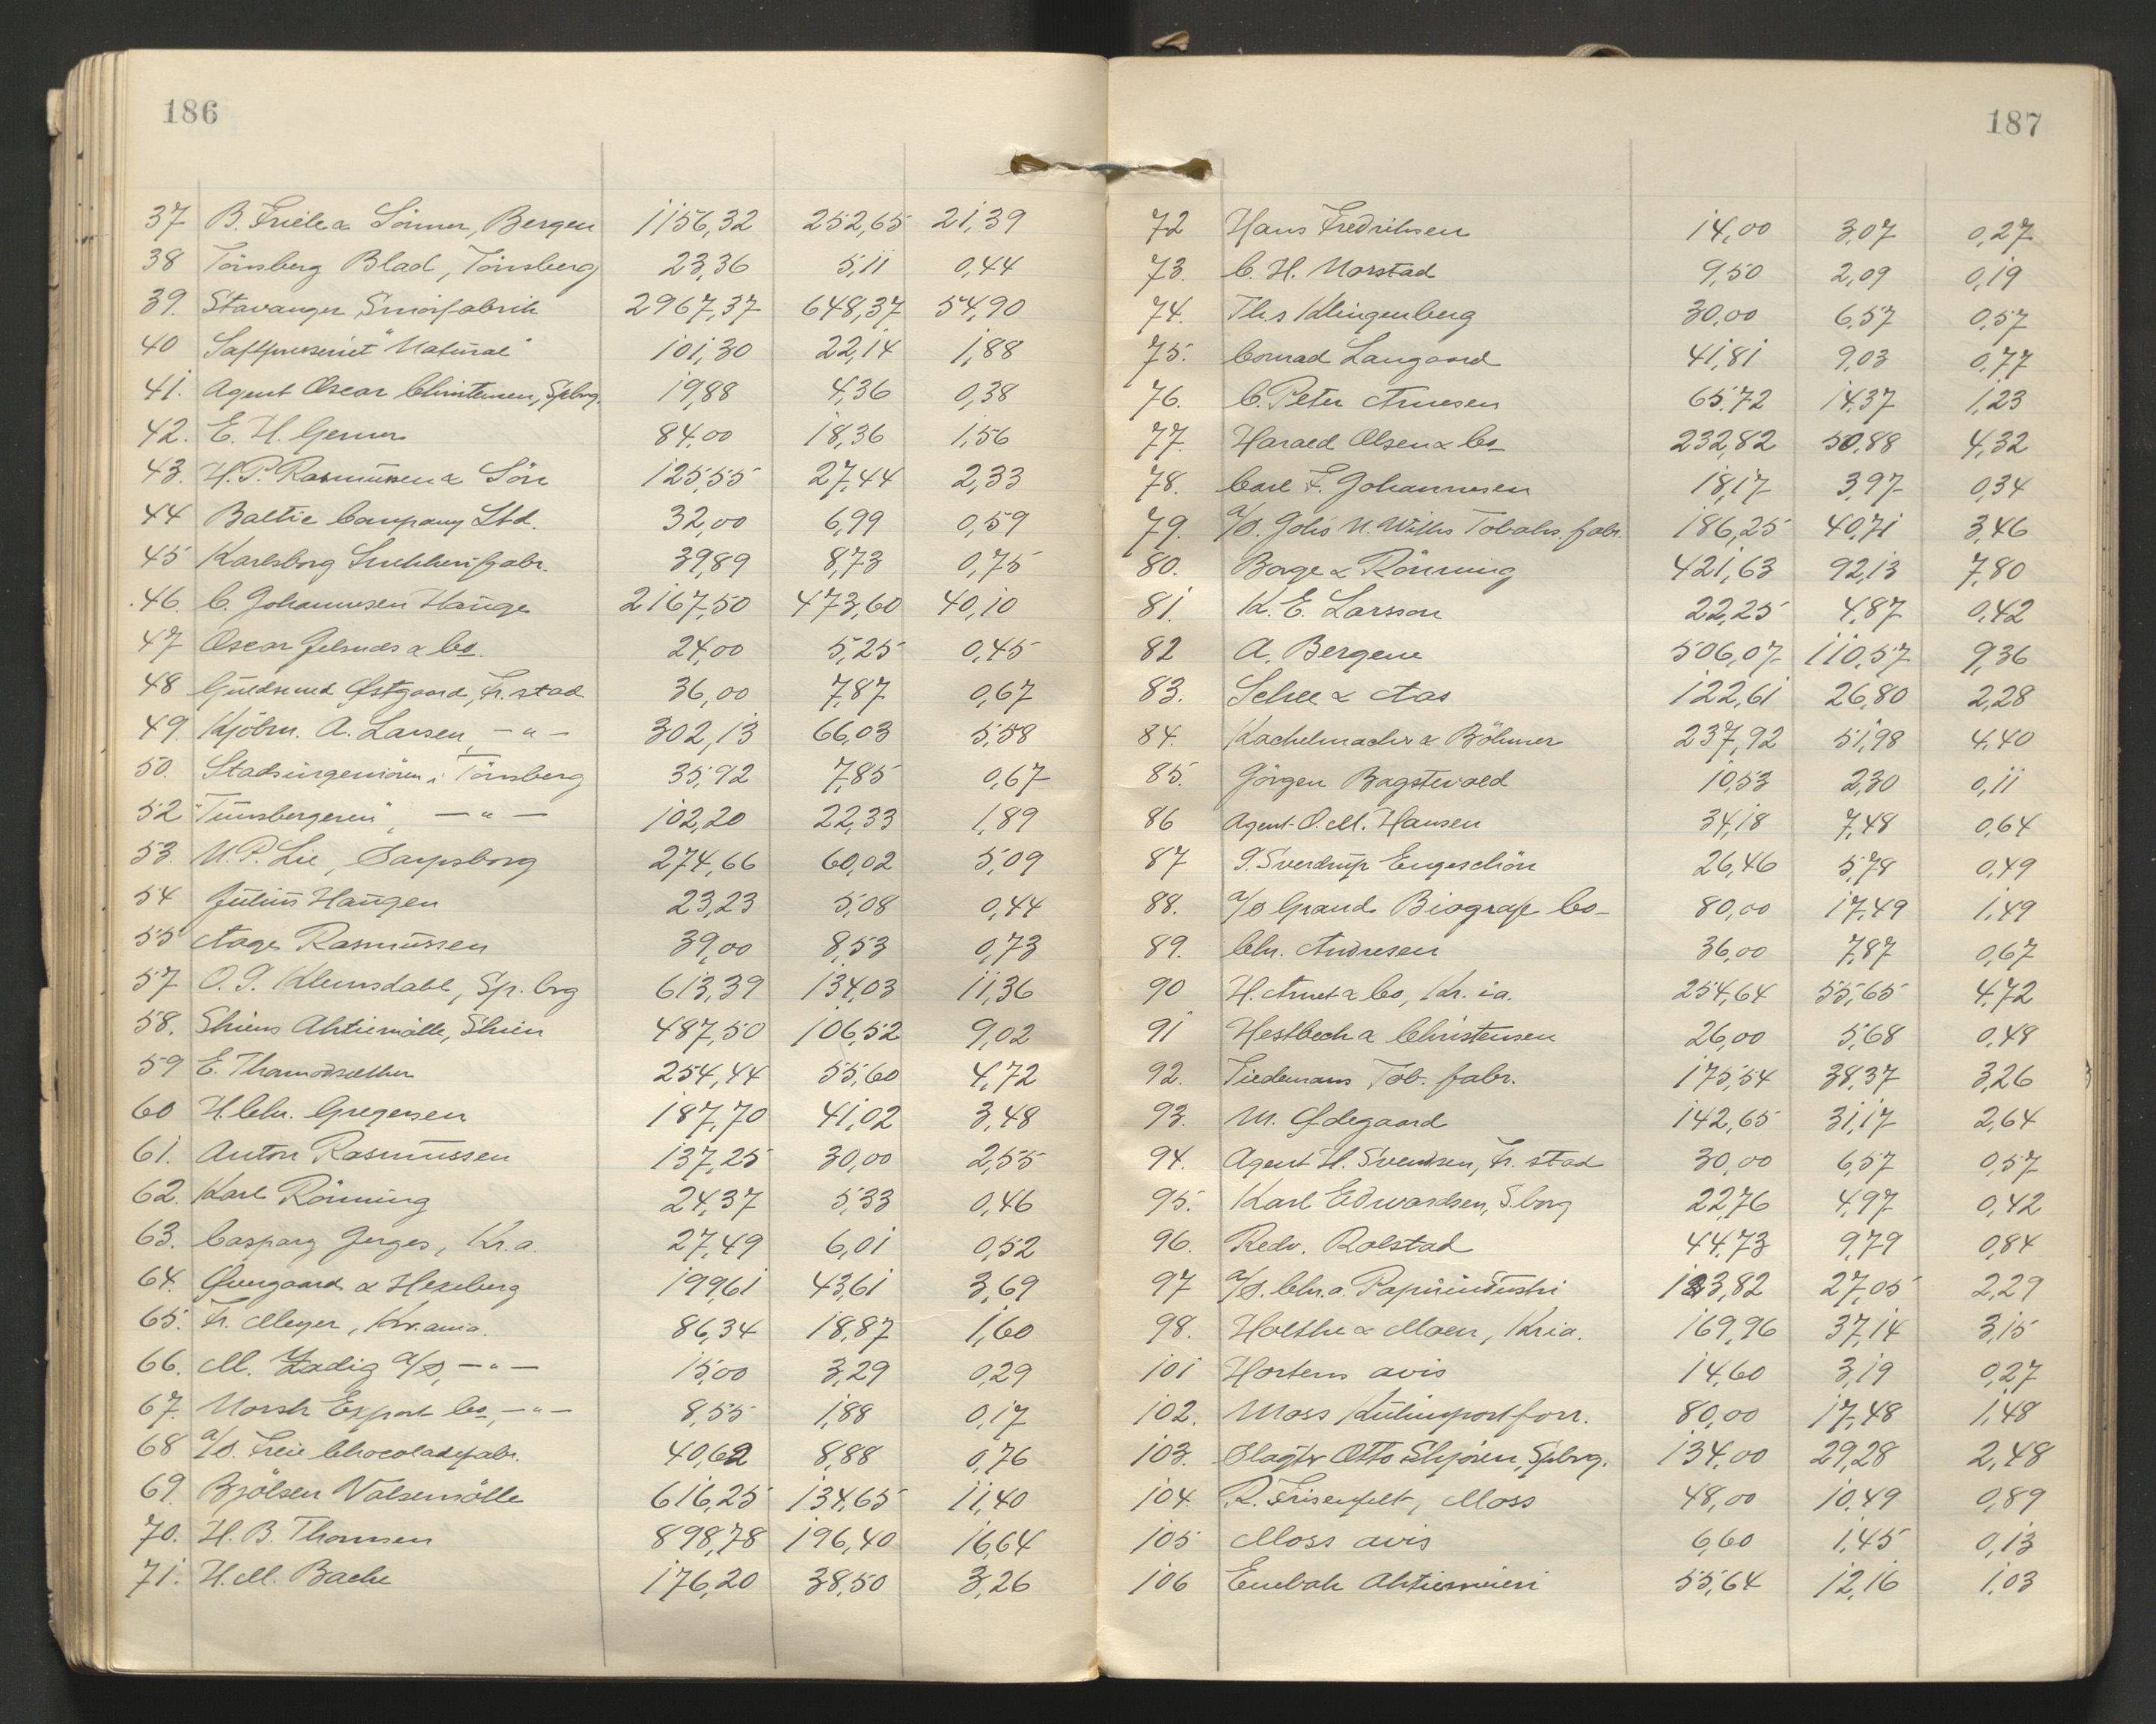 186
37 B. Friele & Sönner, Bergen 1156,32 252,65 21,39
38 Tönsberg Blad, Tönsberg 23,36 5,11 0,44
39. Stavanger Smörfabrik 2967,37 648,37 54,90
40 Saftpresseriet "Natural" 101,30 22,14 1,88
41. Agent Oscar Christensen, Spbrg. 19,88 4,36 0,38
42. E. H. 84,00 18,36 1,56
43. H. P. Rasmussen & Sön 125,55 27,44 2,33
44 Baltic Company Ltd. 32,00 6,99 0,59
45 Karlsborg 39,89 8,73 0,75
46. C. Johannesen Hauge 2167,50 473,60 40,10
47 Oscar & Co. 24,00 5,25 0,45
48 Guldsmed Østgaard, Fr.stad 36,00 7,87 0,67
49. Kjöbm. A. Larsen, — " — 302,13 66,03 5,58
50. Stadsingeniören i Tönsberg 35,92 7,85 0,67
52 "Tunsbergeren", — " — 102,20 22,33 1,89
53. N. P. Lie, Sarpsborg 274,66 60,02 5,09
54 Julius Haugen 23,23 5,08 0,44
55 Aage Rasmussen 39,00 8,53 0,73
57 O. G. Klemsdahl, Sp.brg 613,39 134,03 11,36
58. Skiens Aktiemölle, Skien 487,50 106,52 9,02
59 E. Thormodsæther 254,44 55,60 4,72
60 H. Chr. Gregersen 187,70 41,02 3,48
61. Anton Rasmussen 137,25 30,00 2,55
62. Karl Rönning 24,37 5,33 0,46
63. Caspary Jerges, Kr.a. 27,49 6,01 0,52
64. Øvergaard & Hexeberg 199,61 43,61 3,69
65. Fr. Meyer, Kr.ania. 86,34 18,87 1,60
66. M. Zadig a/s, — " — 15,00 3,29 0,29
67. Norsk Export Co, — " — 8,55 1,88 0,17
68 a/s. Freia Chocoladefabr. 40,62 8,88 0,76
69. Bjölsen Valsemölle 616,25 134,65 11,40
70. H. B. Thomsen 898,78 196,40 16,64
71. H. M. Bache 176,20 38,50 3,26
187
72 Hans Fredriksen 14,00 3,07 0,27
73. C. H. Norstad 9,50 2,09 0,19
74. Ths Klingenberg 30,00 6,57 0,57
75. Conrad Langaard 41,81 9,03 0,77
76. C. Peter Arnesen 65,72 14,37 1,23
77. Harald Olsen & Co 232,82 50,88 4,32
78. Carl F. Johannesen 18,17 3,97 0,34
79. a/s. Johs N. Wilhs Tobaks.fabr. 186,25 40,71 3,46
80. Borge & Rönning 421,63 92,13 7,80
81. K. E. Larsson 22,25 4,87 0,42
82 A. Bergene 506,07 110,57 9,36
83. Schee & Aas 122,61 26,80 2,28
84. Kachelmacher & Böhmer 237,92 51,98 4,40
85. Jörgen Bagstevold 10,53 2,30 0,11
86 Agent O. M. Hansen 34,18 7,48 0,64
87 G. Sverdrup Engeschön 26,46 5,78 0,49
88. a/s Grand Biograf Co 80,00 17,49 1,49
89. Chr. Andresen 36,00 7,87 0,67
90 H. & Co, Kr.ia. 254,64 55,65 4,72
91 Hestbech & Christensen 26,00 5,68 0,48
92. Tiedemans Tob. fabr. 175,54 38,37 3,26
93. M. Ødegaard 142,65 31,17 2,64
94. Agent H. Svendsen, Fr.stad 30,00 6,57 0,57
95. Karl Edvardsen, S.borg 22,76 4,97 0,42
96. Redv. Rolstad 44,73 9,79 0,84
97 a/s. Chr.a. Papirindustri 123,82 27,05 2,29
98. Holthe & Moen, Kria. 169,96 37,14 3,15
101 Hortens avis 14,60 3,19 0,27
102. Moss Kulimportforr. 80,00 17,48 1,48
103. Slagter Otto Skjören, Spbrg. 134,00 29,28 2,48
104. R. Frisenfelt, Moss 48,00 10,49 0,89
105 Moss avis 6,60 1,45 0,13
106 Enebak Aktiemeieri 55,64 12,16 1,03